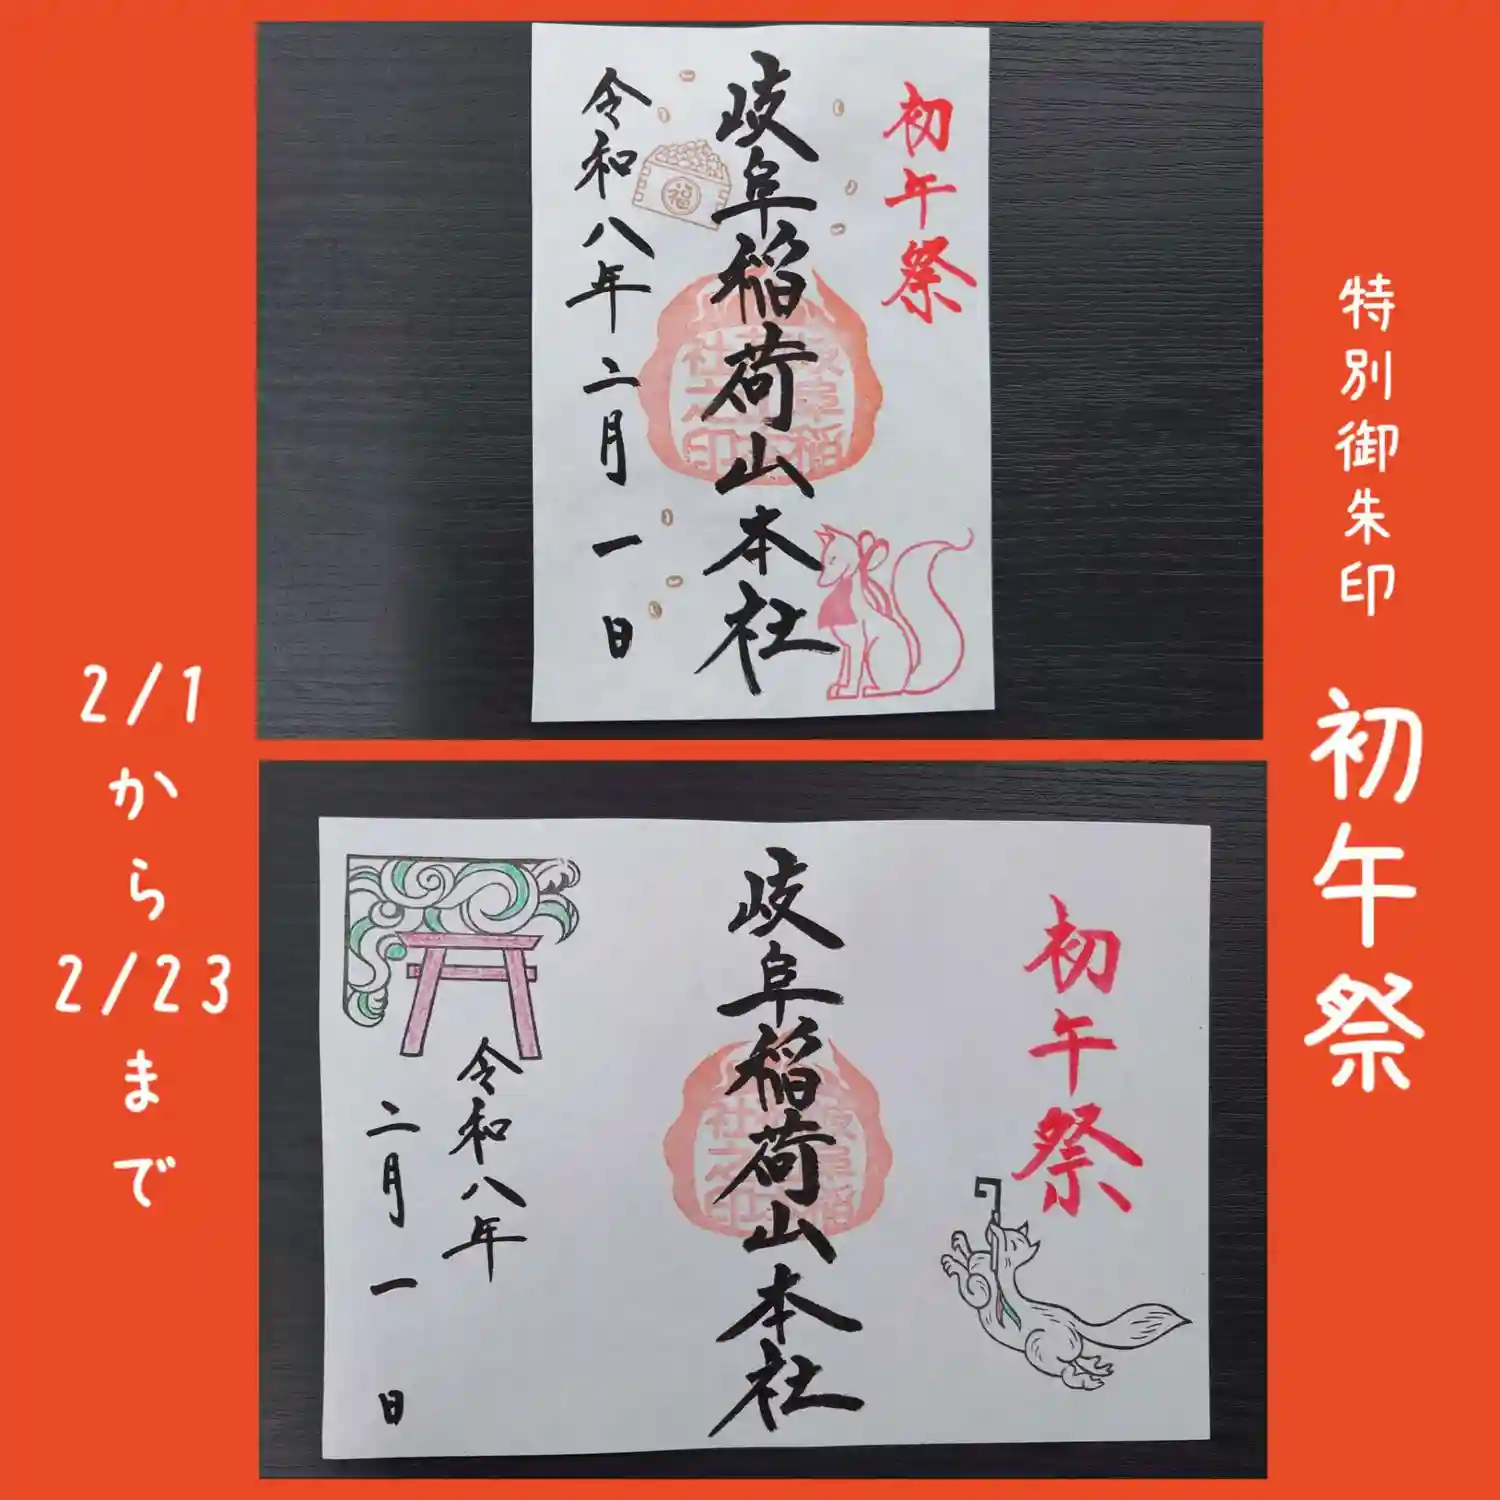 特別御朱印 初午祭
初午祭
岐阜稲荷山本社
令和八年二月一日
福
初午祭
岐阜稲荷山本社
令和八年
二月一日
2/1
から
2/23
まで